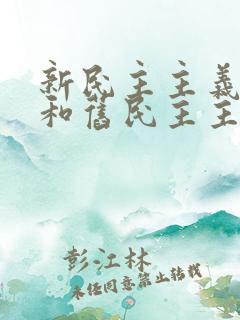 新民主主義
和舊民主主
彭江林
未经同意禁止转载